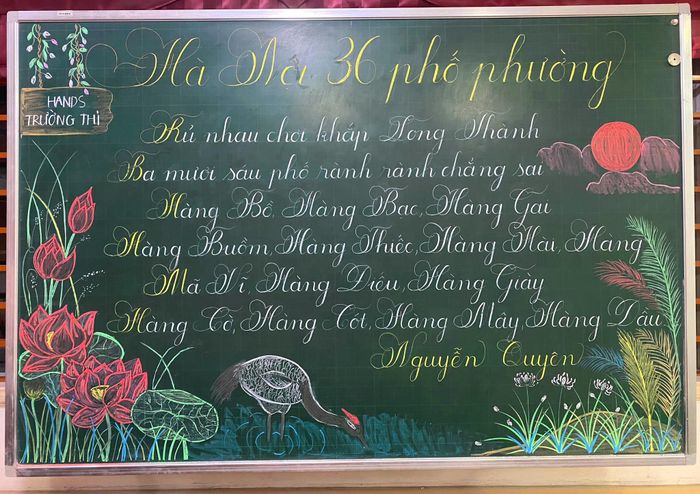 Hà Nội 36 phố phường
HANDS
TRƯỜNG THI
Rủ nhau chơi khắp Long Thành
Ba mươi sáu phố rành rành chẳng sai
Hàng Bồ, Hàng Bạc, Hàng Gai
Hàng Buồm, Hàng Thiếc, Hàng Hài, Hàng
Mã Vĩ, Hàng Điếu, Hàng Giày
Hàng Cờ, Hàng Cót, Hàng Mây, Hàng Đàn
Nguyễn Quyên